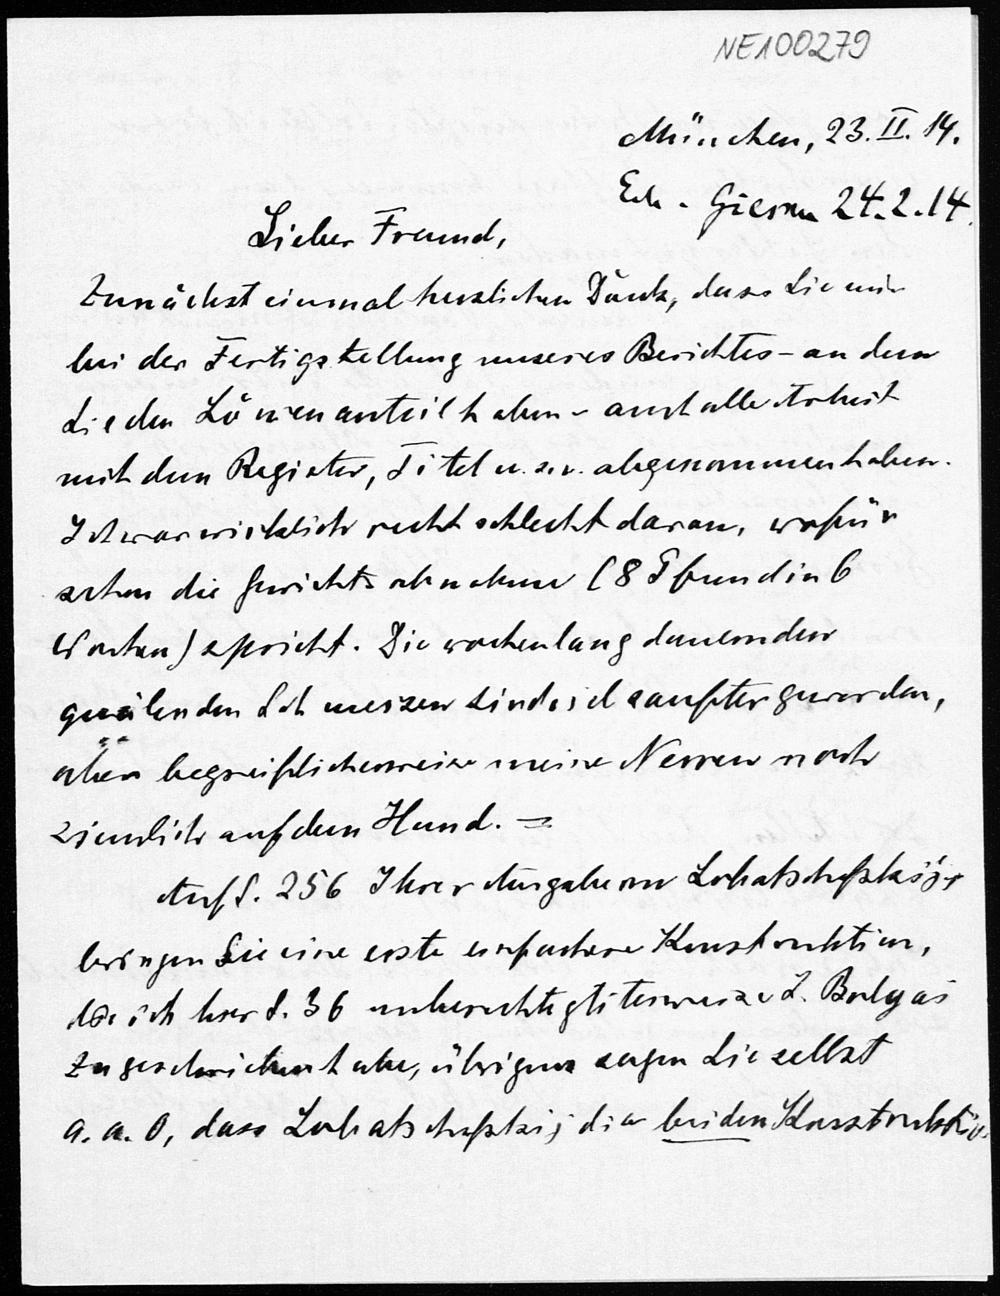 NE100279
München, 23. II. 14.
Erh. Giessen 24.2.14.
Lieber Freund,
Zunächst einmal herzlichen Dank, dass Sie mir
bei der Fertigstellung unseres Berichtes – an dem
Sie den Löwenanteil haben – auch alle Arbeit
mit dem Register, Titel u.s.w. abgenommen haben.
Ich war wirklich recht schlecht daran, wofür
schon die Gewichtsabnahme (8 Pfund in 6
Wochen) spricht. Die wochenlang dauernden
quälenden Schmerzen sind viel sanfter geworden,
aber begreiflicherweise meine Nerven noch
ziemlich auf dem Hund. –
Auf S. 256 Ihrer Ausgabe von Lobatschefskij
bringen Sie eine erste einfachere Konstruktion,
die ich hier S. 36 unberechtigterweise J. Bolyai
zugeschrieben habe, übrigens sagen Sie selbst
a. a. O, dass Lobatschefskij die beiden Konstruktio-